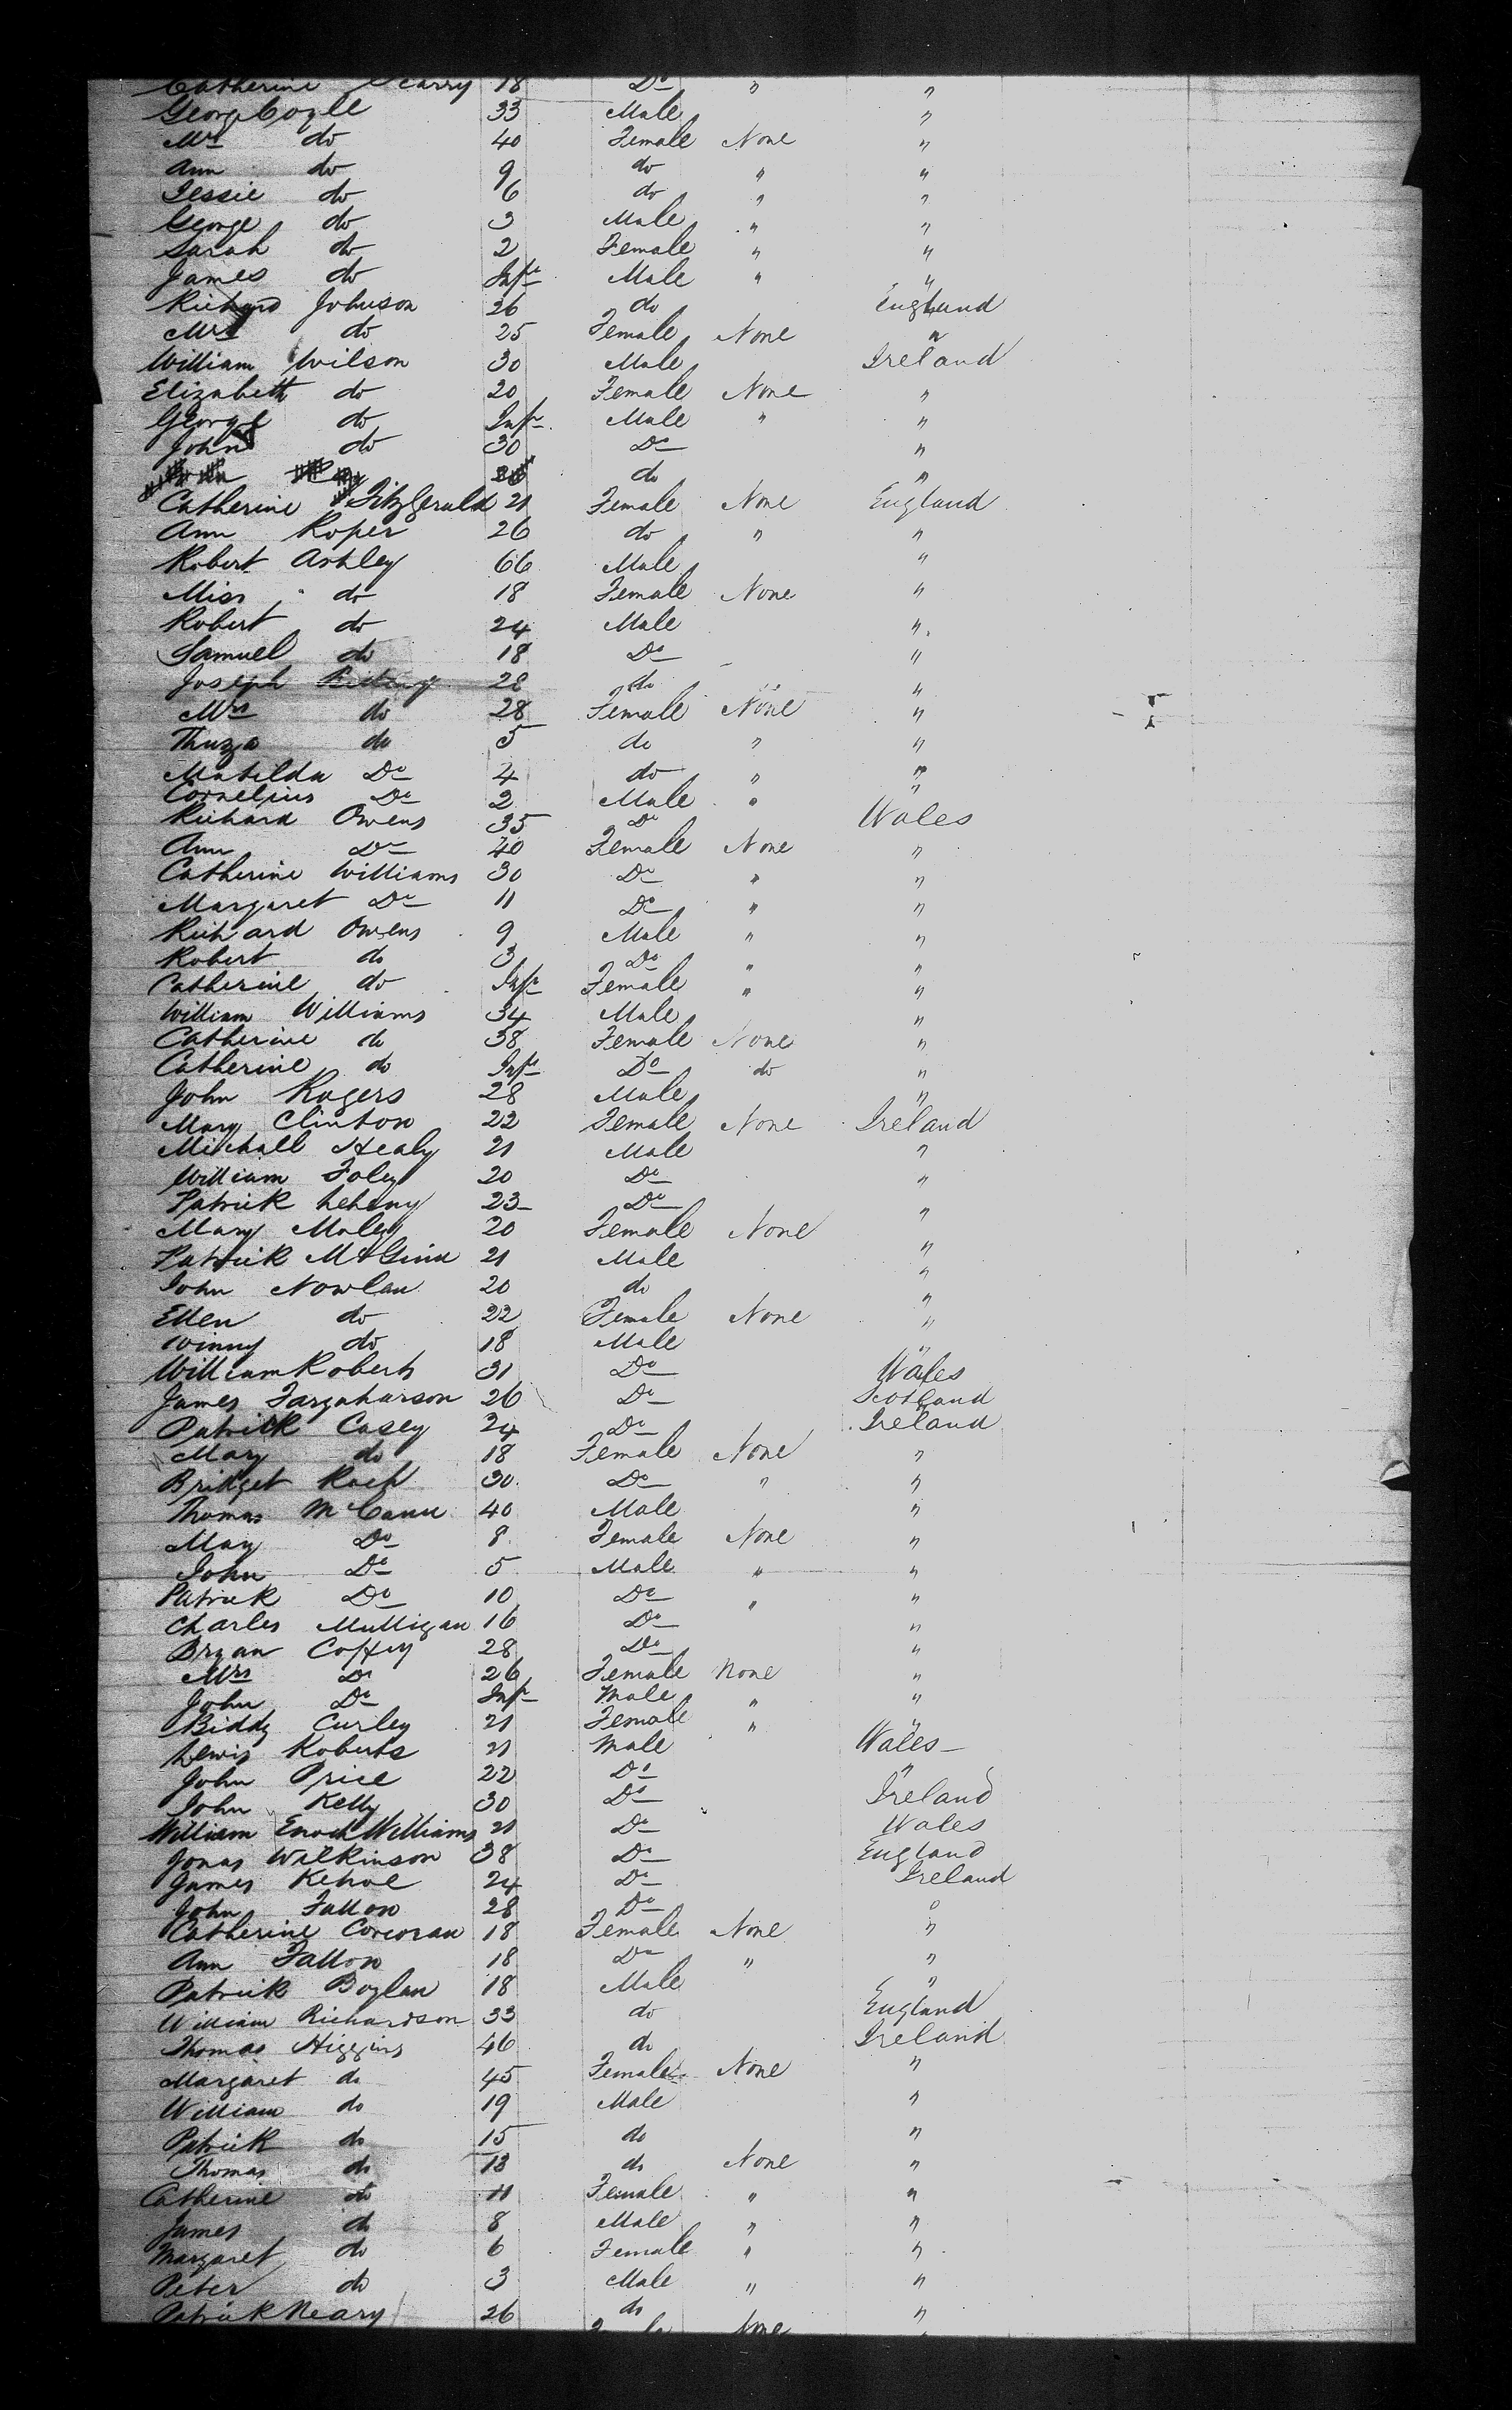 Catherine Scarry 18 Do " "
George Coyle 33 Male "
Mrs do 40 Female None "
Ann do 9 do " "
Jessie do 6 do " "
George do 3 Male " "
Sarah do 2 Female " "
James do Inft Male " "
Richard Johnson 26 do England
Mrs do 25 Female None "
William Wilson 30 Male Ireland
Elizabeth do 20 Female None "
George do Inft Male " "
John do 30 Do "
do "
Catherine Fitzgerald 21 Female None England
Ann Roper 26 do " "
Robert Ashley 66 Male "
Miss do 18 Female None "
Robert do 24 Male "
Samuel do 18 Do "
Joseph 28 do "
Mrs do 28 Female None "
Thuza do 5 do " "
Matilda Do 4 do " "
Cornelius Do 2 Male " "
Richard Owens 35 Do Wales
Ann Do 40 Female None "
Catherine Williams 30 Do " "
Margaret Do 11 Do " "
Richard Owens 9 Male " "
Robert do 3 Do " "
Catherine do Inft Female " "
William Williams 34 Male "
Catherine do 38 Female None "
Catherine do Inft Do do "
John Rogers 28 Male "
Mary Clinton 22 Female None Ireland
Michall Healy 21 Male "
William Foley 20 Do "
Patrick Lehany 23 Do "
Mary Maley 20 Female None "
Patrick McGinn 21 Male "
John Nowlan 20 do "
Ellen do 22 Female None "
Winny do 18 Male "
William Roberts 31 Do Wales
James Farquharson 26 Do Scotland
Patrick Casey 24 Do Ireland
Mary do 18 Female None "
Bridget Roch 30 Do " "
Thomas McCann 40 Male "
Mary Do 8 Female None "
John Do 5 Male " "
Patrick Do 10 Do " "
Charles Mulligan 16 Do "
Bryan Coffey 28 Do "
Mrs Do 26 Female None "
John Do Inft Male " "
Biddy Curley 21 Female " "
Lewis Roberts 21 Male Wales
John Price 22 Do "
John Kelly 30 Do Ireland
William Enoch Williams 21 Do Wales
Jonas Wilkinson 38 Do England
James Kehoe 24 Do Ireland
John Fallon 28 Do "
Catherine Corcoran 18 Female None "
Ann Fallon 18 Do " "
Patrick Boylan 18 Male "
William Richardson 33 do England
Thomas Higgins 46 do Ireland
Margaret do 45 Female None "
William do 19 Male "
Patrick do 15 do "
Thomas do 13 do None "
Catherine do 11 Female " "
James do 8 Male " "
Margaret do 6 Female " "
Peter do 3 Male " "
Patrick Neary 26 do "
None